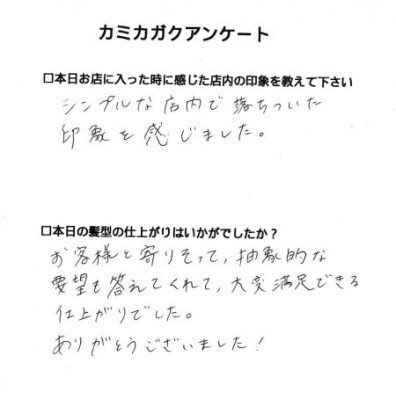 カミカガクアンケート
□本日お店に入った時に感じた店内の印象を教えて下さい
シンプルな店内で落ちついた
印象を感じました。
□本日の髪型の仕上がりはいかがでしたか？
お客様と寄りそって、抽象的な
要望も答えてくれて、大変満足できる
仕上がりでした。
ありがとうございました！